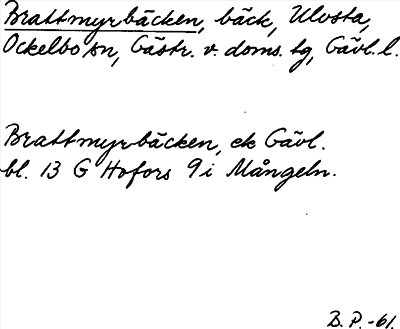 Brattmyrbäcken, bäck, Ulvsta,
Ockelbo sn, Gästr. v. doms. tg, Gävl. l.
Brattmyrbäcken, ek Gävl.
bl. 13 G Hofors 9 i Mångeln.
B. P. -61.